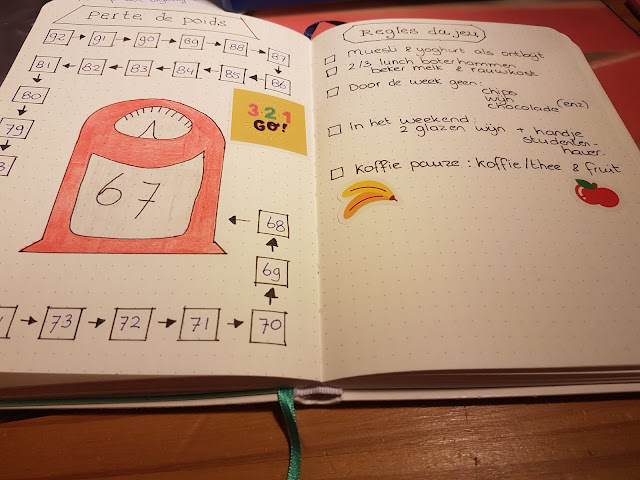 Perte de poids
92 → 91 → 90 → 89 → 88 → 87
81 ← 82 ← 83 ← 84 ← 85 ← 86
80
79
3 2 1
GO!
67
68
69
73 → 72 → 71 → 70
Regles du jeu
Muesli & yoghurt als ontbijt
2/3 lunch boterhammen
beker melk & rauwkost
Door de week geen:
chips
wijn (enz)
chocolade
In het weekend:
2 glazen wijn + handje
studenten-
haver.
koffie pauze : koffie/thee & fruit